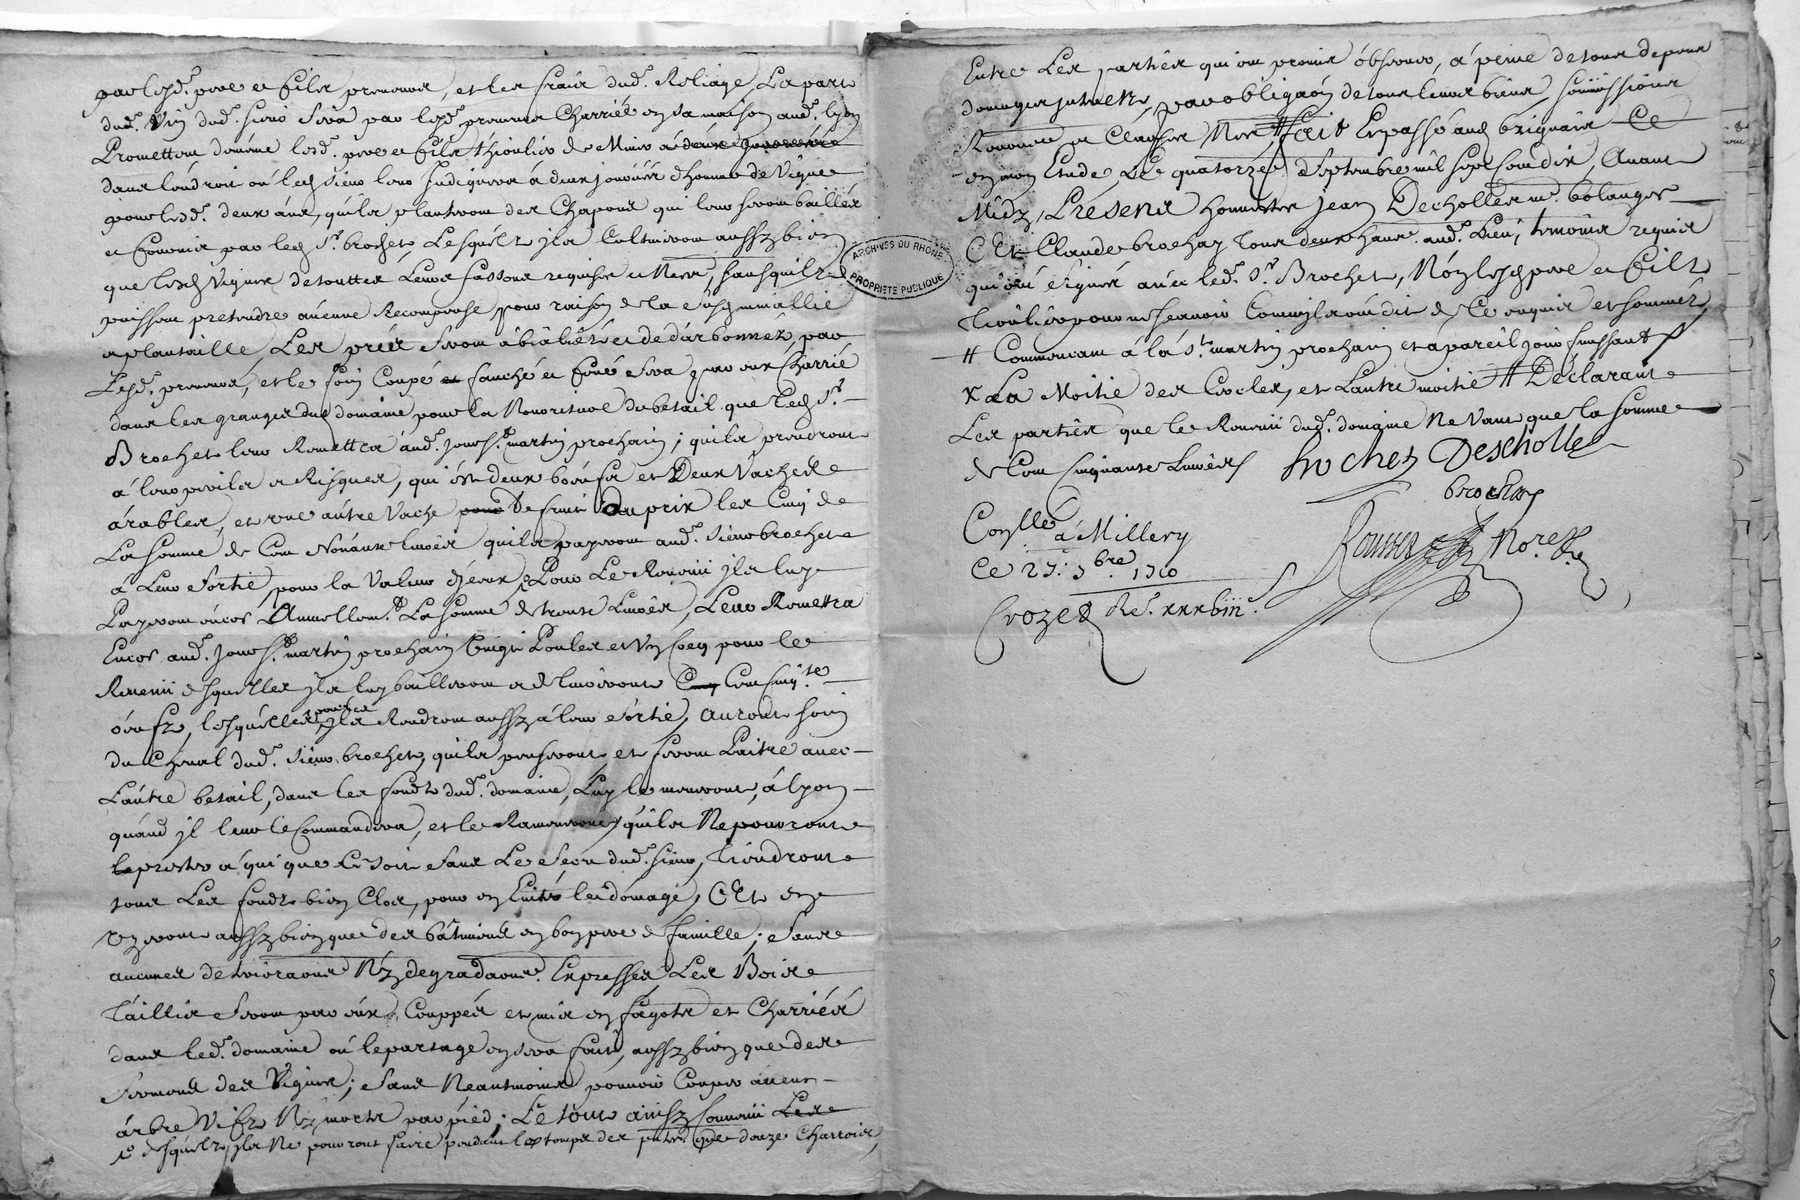 par lesd. pere et fils preneurs, et les frais dud. Reliage, La part
dud. Vin dud. sieur sera par lesd. preneurs Charrié en sa maison aud. lyon
Promettant lesd. pere et fils
dans l'endroit où led. sieur leur Indiquera a deux journées d'homme de Vigne
pour lesd. deux ans, qu'ils planteront des Chapons qui leur seront baillés
et fournis par led. Sr. brochet, Lesquels ils Cultiveront aussy bien
que lesd. Vignes de touttes Leurs fassons requises et Ness. sans qu'ils
puissent pretendre aucune Recompense pour raison de la
plantaille, Les prés seront et par
Lesd. preneurs, et le foin Coupé et fauché et fené sera par eux Charrié
dans les granges dud. domaine pour la Nourriture du betail que led. Sr.
Brochet leur Remettra aud. jour St. martin prochain; qu'ils prendront
a leur perils et Risques, qui est deux boeufs et Deux Vaches
arables, et une autre Vache De fruit Du prix les Cinq de
La somme de Cent Nonante Livres qu'ils payeront aud. sieur brochet
a Leur sortie, pour la Valeur d'jceux, Pour Le Revenu ils luy
Payeront encor Annuellemt. La somme de trente Livres, Leur Remettra
Encor aud. jour St. martin prochain Vingt Poules et Un Cocq pour le
Revenu desquelles ils luy bailleront et delivreront Cent Cinqte.
oeufs, lesquelles poules ils Rendront aussy a leur sortie, auront soin
du Cheval dud. sieur brochet, qu'ils penseront et feront Paitre avec
L'autre betail, dans les fonds dud. domaine, Luy le meneront, a lyon
quand jl leur le Commandera, et le Rameneront, qu'ils Ne pourront
le prester a qui que ce soit sans Le sceu dud. sieur, Tiendront
tous Les fonds bien Clos, pour en Eviter les domages, Et en
Useront aussy bien que des batiments en bon pere de famille; sans
aucunes deteriorations Ny degradaons. Expresses, Les Bois
Taillis seront par eux Couppés et mis en fagots et Charriés
dans led. domaine où le partage en sera fait, aussy bien que des
serments des Vignes; sans Neantmoins pouvoir Couper aucun
arbre Vifs Ny morts par pied; Le tout ainsy Convenu
desquels ils Ne pourront faire pendant le temps des que douze Charrois,
Entre Les parties qui ont promis observer, a peine de tous depens
domages interets, par obligaon de tous leurs biens, soumissions
Renoncé et Clauses Ness. fait Et passé aud. brignais
en mon Etude, Le quatorze septembre mil sept cent dix, Avant
Midy, Présents honnestes jean Decholles me. bolanger
Et Claude brochay tous deux hants. aud. Lieu, temoins requis
qui ont signé avec led. Sr. Brochet, Non lesd. pere et fils
pour ne sçavoir Comm'ils ont dit de Ce enquis et sommés
# Commencant a la St. martin prochain et a pareil jour finissant
x La Moitié des Cocles, et L'autre moitié # Declarant
Les parties que le Revenu dud. domaine Ne Vaut que la somme
de Cent Cinquante Livres brochet Descholle
brochay
Conllé a Millery
Ce 27. 7bre. 1710
Nore. Rl.
Crozet Re.
ARCHIVES DU RHÔNE
PROPRIÉTÉ PUBLIQUE